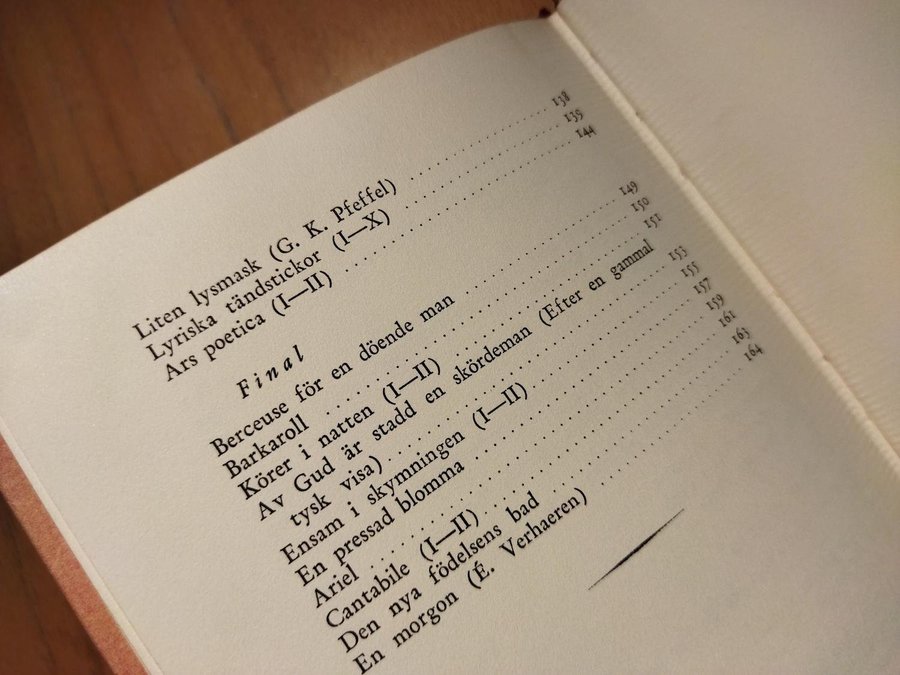 Liten lysmask (G. K. Pfeffel) 138
Lyriska tändstickor (I—X) 139
Ars poetica (I—II) 144
Final
Berceuse för en döende man 149
Barkaroll 150
Körer i natten (I—II) 151
Av Gud är stadd en skördeman (Efter en gammal
tysk visa) 153
Ensam i skymningen (I—II) 155
En pressad blomma 157
Ariel 159
Cantabile (I—II) 161
Den nya födelsens bad 163
En morgon (É. Verhaeren) 164